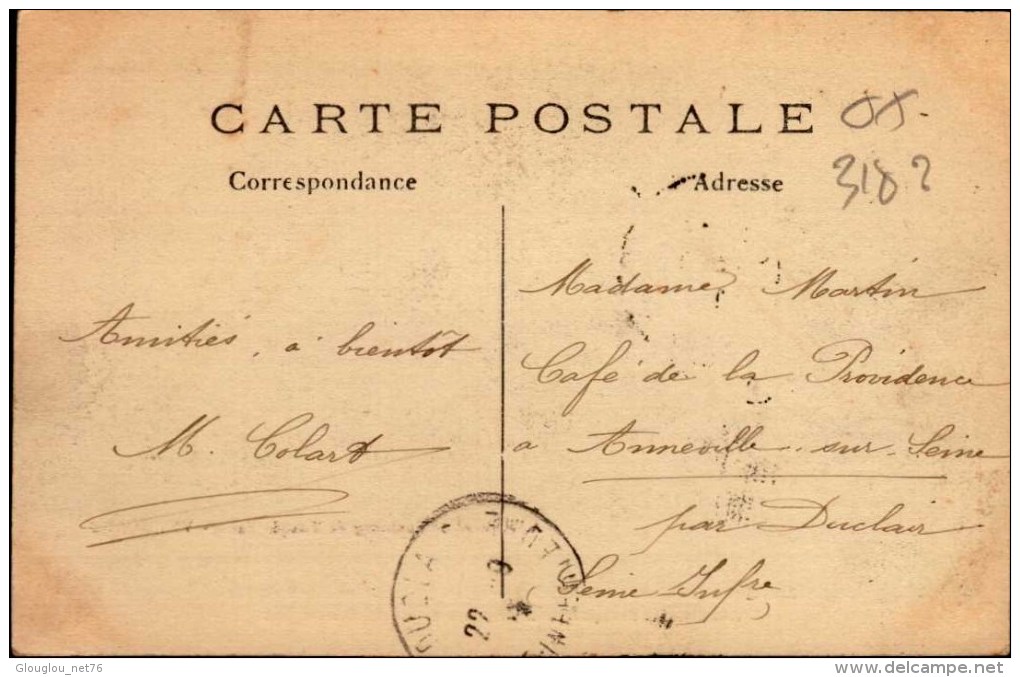 CARTE POSTALE
3182
Correspondance
Adresse
Amitiés, à bientôt
M. Colart
Madame Martin
Café de la Providence
a Anneville sur Seine
par Duclair
Seine Infre
22 9
Glouglou_net76
http://www.delcampe.net